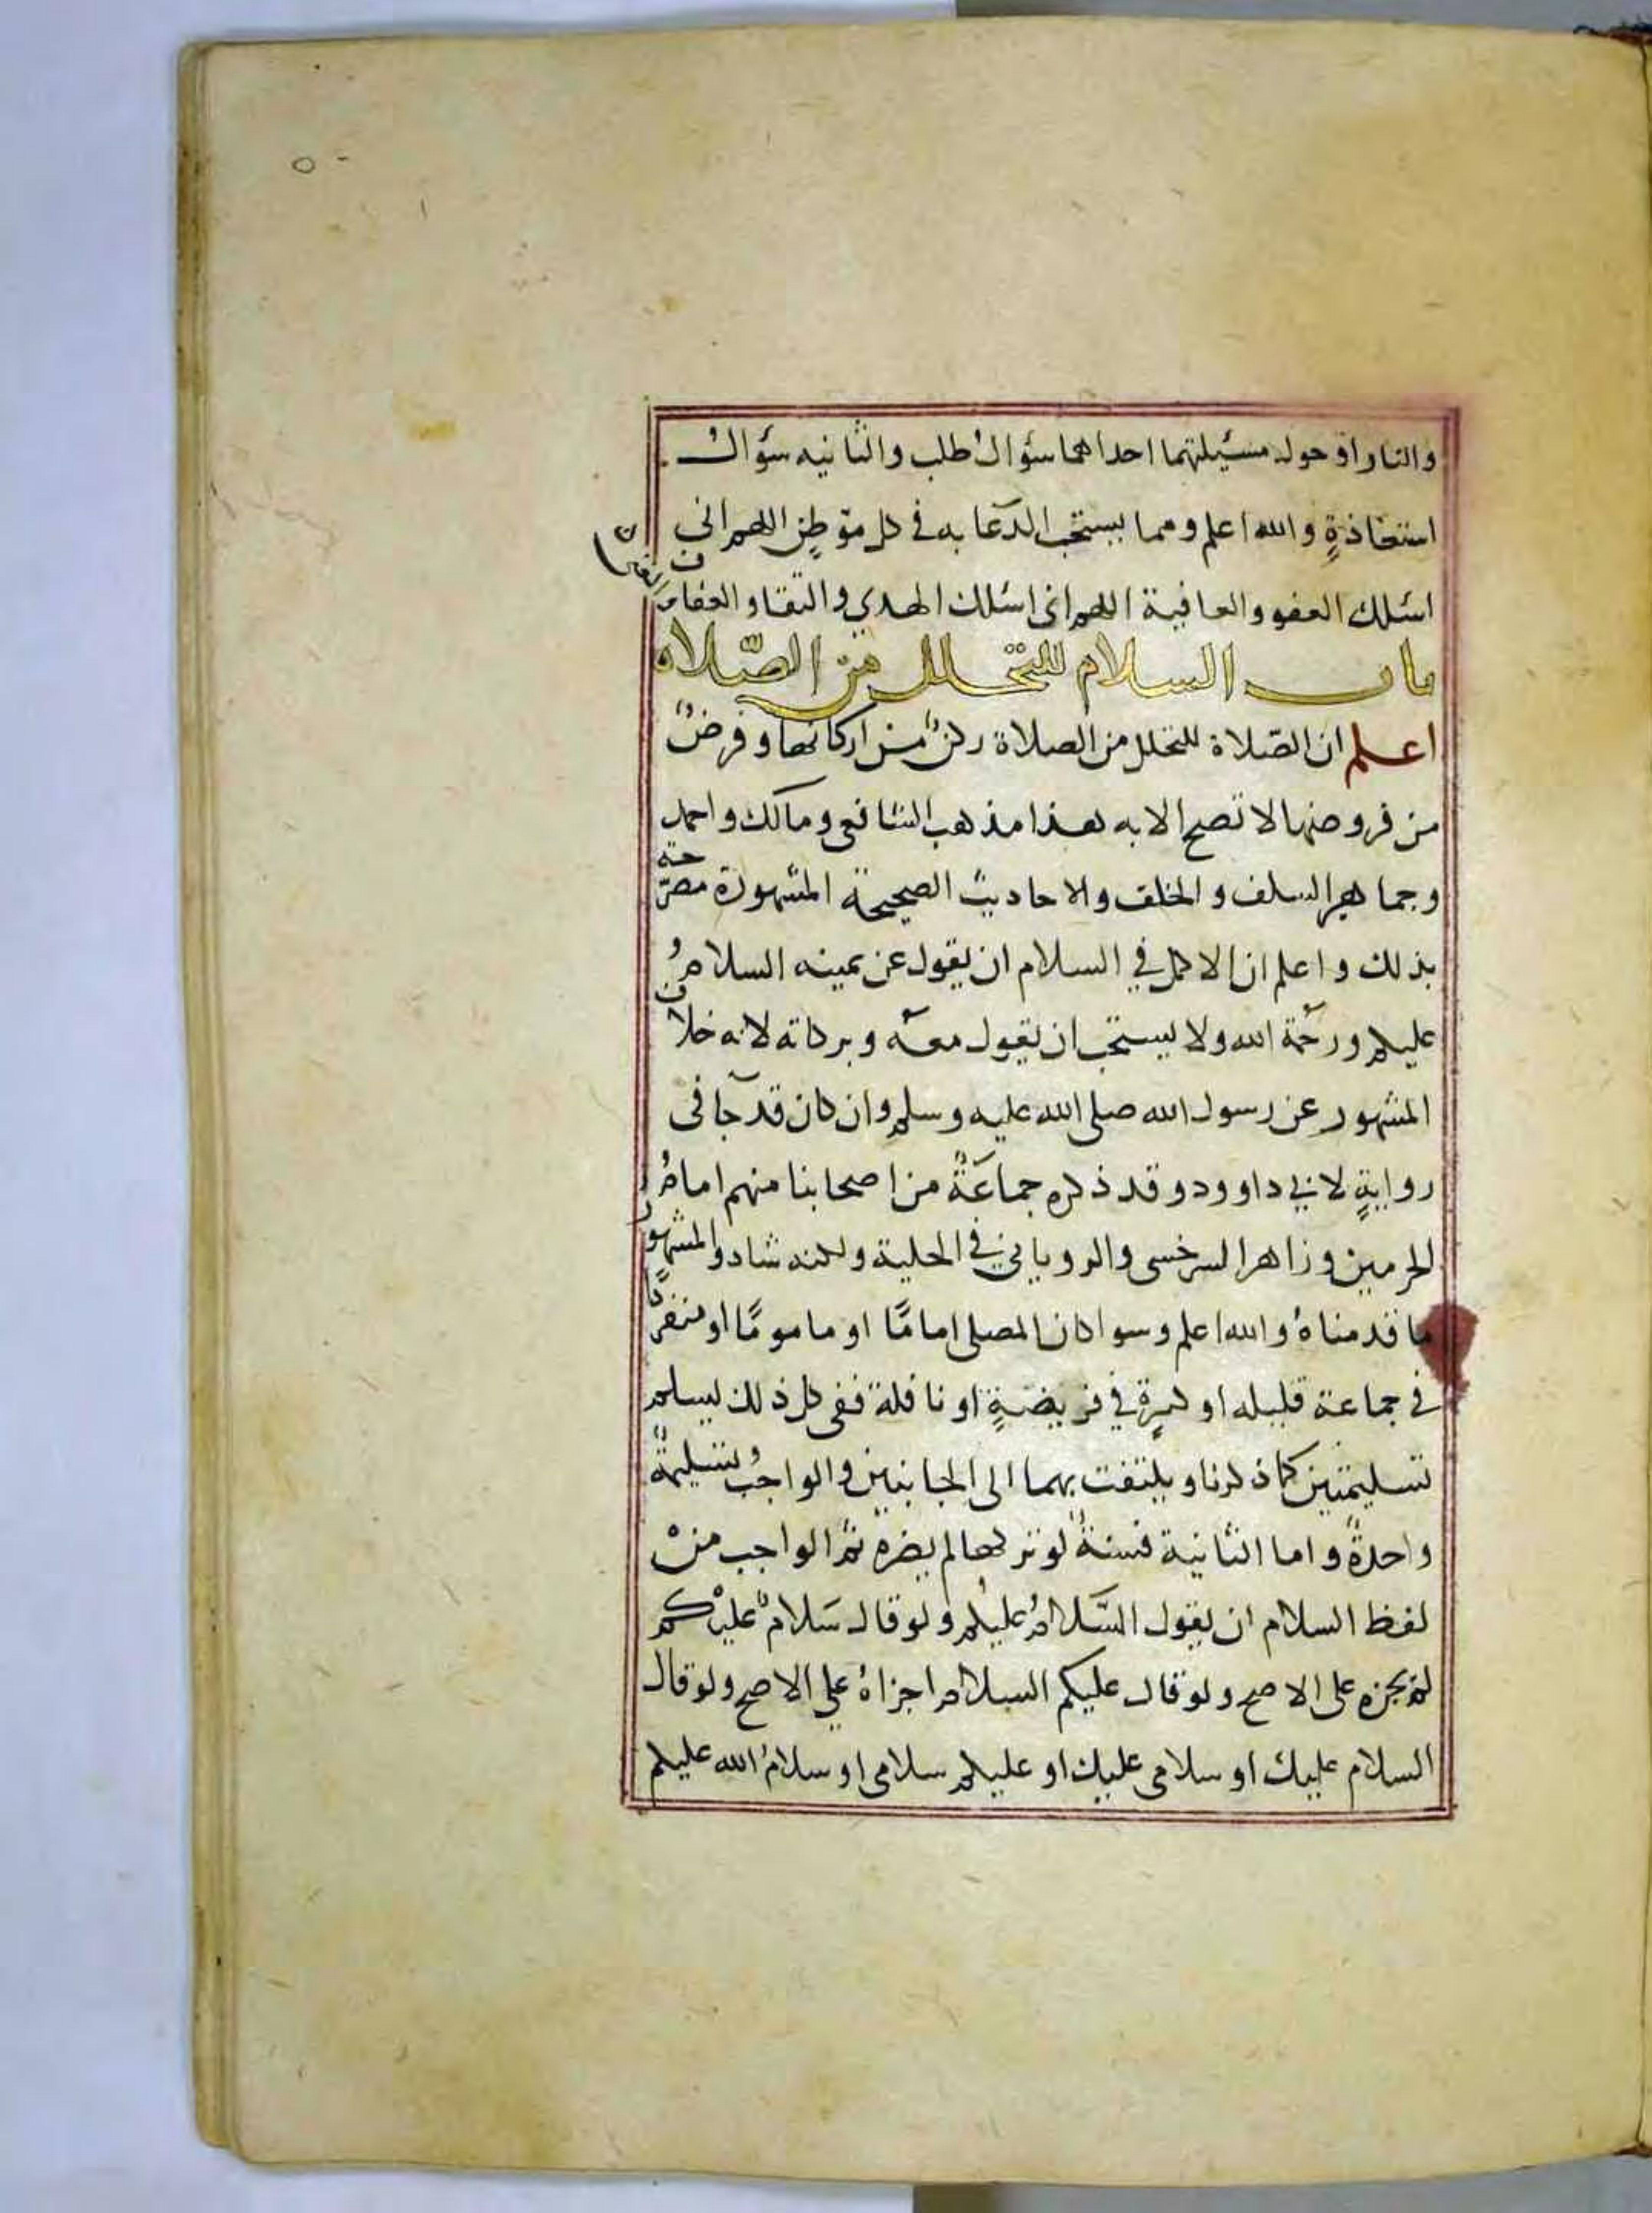 ٥٠
والنار او حول مسئيلتهما احداهما سؤال طلب والثانيه سؤال
استعاذةٍ والله اعلم ومما يستحب الدعا به في كل موطن اللهم اني
اسئلك العفو والعافية اللهم انى اسئلك الهدي والتقا والعفاف
والغنى
باب السلام للتحلل من الصّلاة
اعلم ان الصّلاة للتحلل من الصلاة ركنٌ من اركانها وفرضٌ
من فروضها لا تصح الا به هذا مذهب الشافعى ومالك واحمد
وجماهير السلف والخلف والاحاديث الصحيحة المشهورة مصرّحة
بذلك واعلم ان الاكمل في السلام ان يقول عن يمينه السلامُ
عليكم ورحمة الله ولا يستحب ان يقول معه وبركاته لانه خلاف
المشهور عن رسول الله صلى الله عليه وسلم وان كان قد جآ فى
روايةٍ لابي داوود وقد ذكره جماعَةٌ من اصحابنا منهم امامُ
الحرمين وزاهر السرخسى والرويانيّ في الحلية ولكنه شاد والمشهور
ما قدمناهُ والله اعلم وسوا كان المصلى امامًا او مامومًا او منفردًا
في جماعة قليله او كثيرةٍ في فريضةٍ او نافلة ففى كل ذلك يسلم
تسليمتين كما ذكرنا ويلتفت بهما الى الجانبين والواجبُ تسليمةٌ
واحدةٌ واما الثانية فسنةٌ لو تركها لم يضره ثمّ الواجب منْ
لفظ السلام ان يقول السَّلامُ عليكم ولو قال سَلامٌ عليْكم
لم يجزه على الاصح ولو قال عليكم السلام اجزاهُ علي الاصح ولو قال
السلام عليك او سلامى عليك او عليكم سلامى او سلامُ الله عليكم